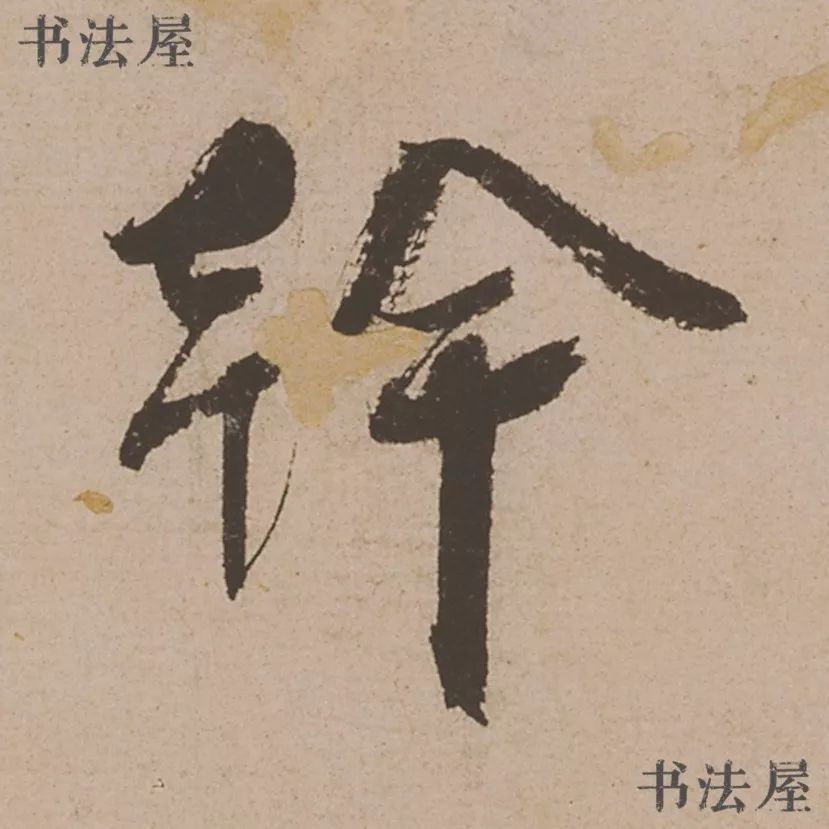 书法屋
幹
书法屋